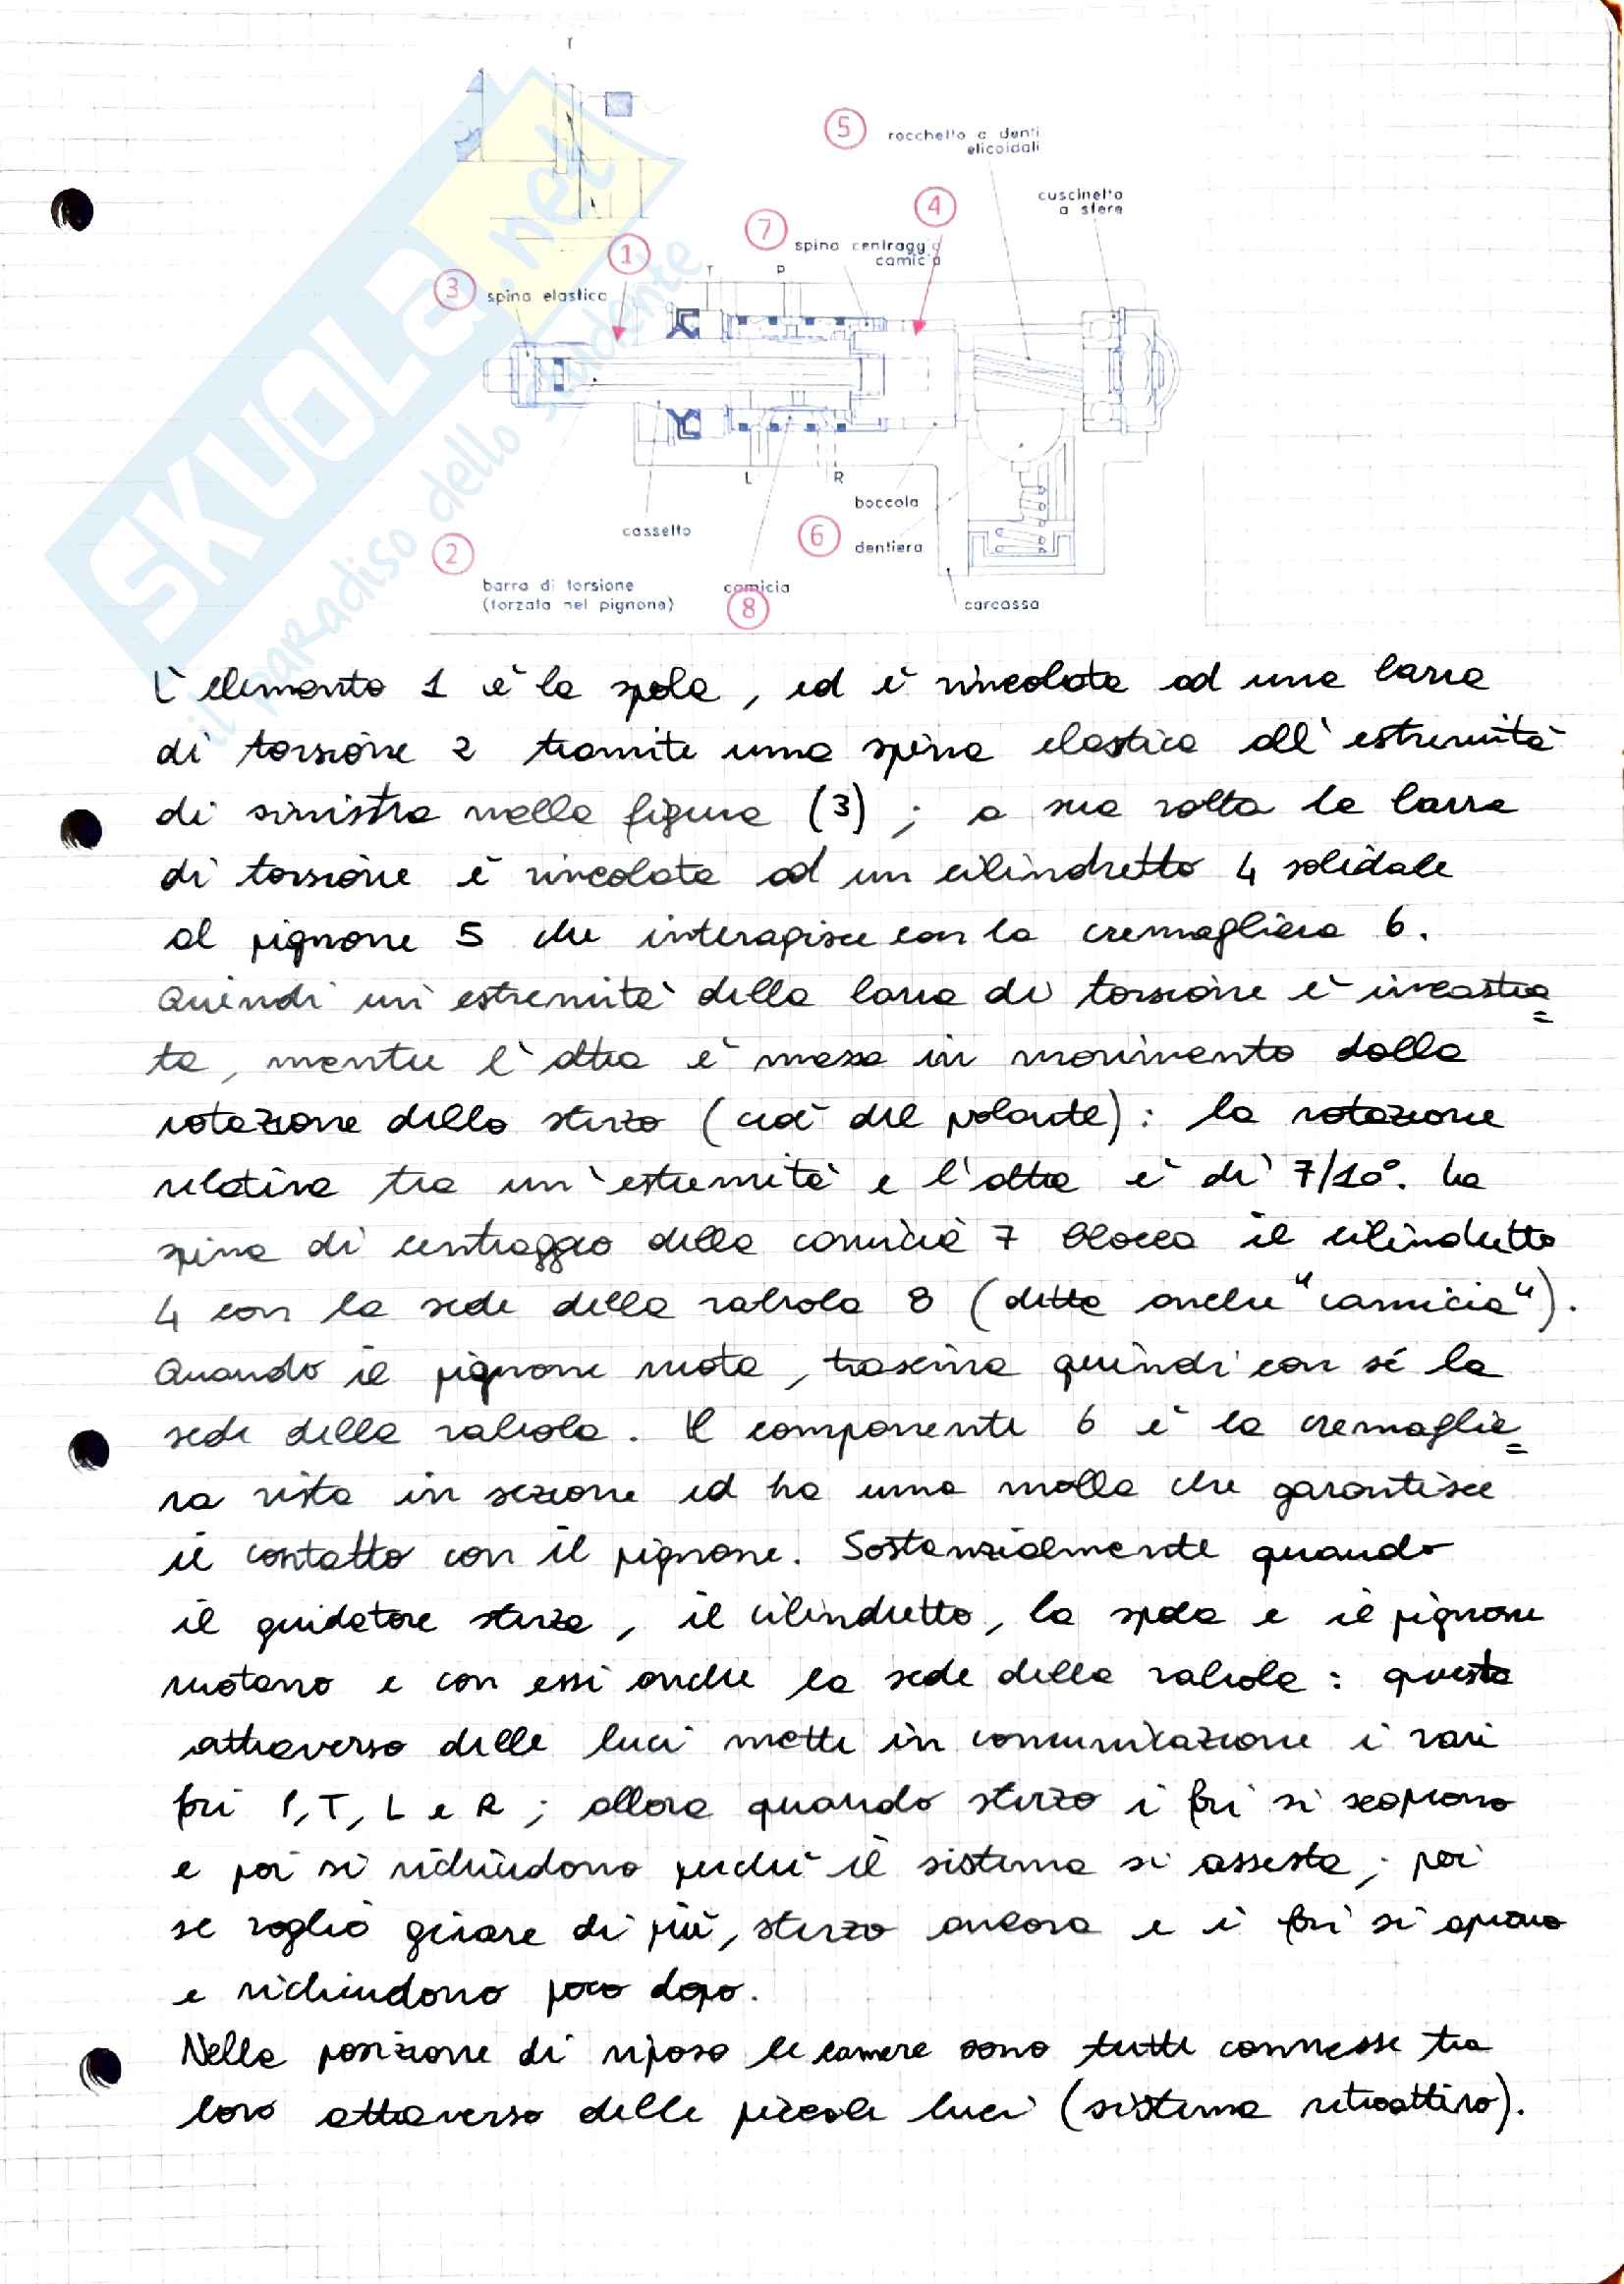 T
5 rocchetto a denti
elicoidali
4
cuscinetto
a sfere
7 spina centraggio
camicia
1
T P
3 spina elastica
L R
boccola
cassetto
6 dentiera
2
barra di torsione
(forzata nel pignone)
camicia
8
carcassa
SKUOLA.net
il paradiso dello studente
L'elemento 1 è la spola, ed è vincolata ad una barra
di torsione 2 tramite una spina elastica all'estremità
di sinistra nella figura (3); a sua volta la barra
di torsione è vincolata ad un cilindretto 4 solidale
al pignone 5 che interagisce con la cremagliera 6.
Quindi un'estremità della barra di torsione è incastra=
ta, mentre l'altra è messa in movimento dalla
rotazione dello sterzo (cioè del volante): la rotazione
relativa tra un'estremità e l'altra è di 7/10°. La
spina di centraggio della camicia 7 blocca il cilindretto
4 con la sede della valvola 8 (detta anche "camicia").
Quando il pignone ruota, trascina quindi con sé la
sede della valvola. Il componente 6 è la cremaglie=
ra vista in sezione ed ha una molla che garantisce
il contatto con il pignone. Sostanzialmente quando
il guidatore sterza, il cilindretto, la spola e il pignone
ruotano e con essi anche la sede della valvola: questa
attraverso delle luci mette in comunicazione i vari
fori P, T, L e R; allora quando sterzo i fori si scoprono
e poi si richiudono perchè il sistema si assesta; poi
se voglio girare di più, sterzo ancora e i fori si aprono
e richiudono poco dopo.
Nella posizione di riposo le camere sono tutte connesse tra
loro attraverso delle piccole luci (sistema retroattivo).